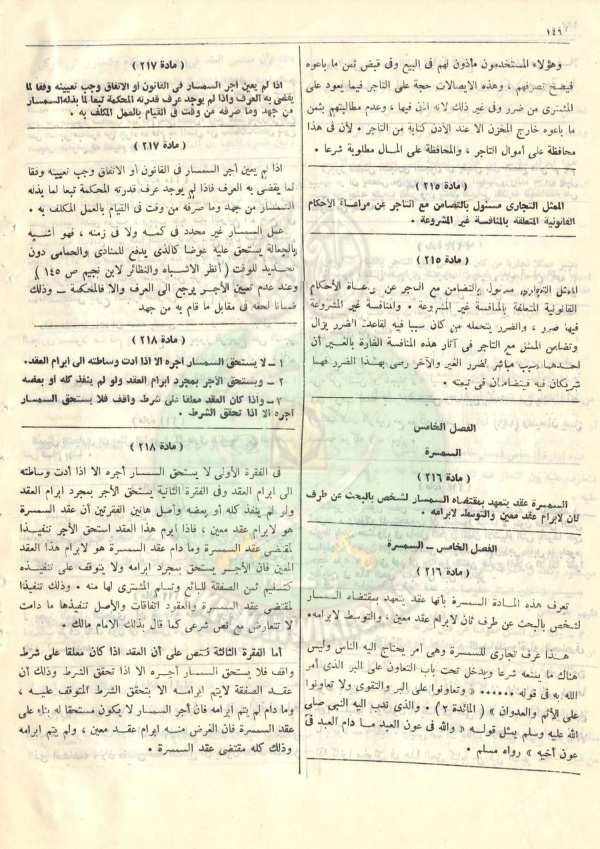 ١٤٩
وهؤلاء المستخدمون مأذون لهم فى البيع وفى قبض ثمن ما باعوه
فيصح تصرفهم ، وهذه الايصالات حجة على التاجر فيما يعود على
المشترى من ضرر وفى غير ذلك لانه اذن فيها ، وعدم مطالبتهم بثمن
ما باعوه خارج المخزن الا عند الاذن كتابة من التاجر . لأن فى هذا
محافظة على أموال التاجر ، والمحافظة على المال مطلوبة شرعا .
( مادة ٢١٥ )
الممثل التجارى مسئول بالتضامن مع التاجر عن مراعاة الأحكام
القانونية المتعلقة بالمنافسة غير المشروعة .
( مادة ٢١٥ )
الممثل التجارى مسئول بالتضامن مع التاجر عن مراعاة الأحكام
القانونية المتعلقة بالمنافسة غير المشروعة . والمنافسة غير المشروعة
فيها ضرر ، والضرر يتحمله من كان سببا فيه لقاعدة الضرر يزال
وتضامن الممثل مع التاجر فى آثار هذه المنافسة الضارة بالغير أن
احدهما سبب مباشر لضرر الغير والآخر رضى بهذا الضرر فهما
شريكان فيه فيتضامنان فى تبعته .
الفصل الخامس
السمسرة
( مادة ٢١٦ )
السمسرة عقد يتعهد بمقتضاه السمسار لشخص بالبحث عن طرف
ثان لابرام عقد معين والتوسط لابرامه .
الفصل الخامس ــ السمسرة
( مادة ٢١٦ )
تعرف هذه المادة السمسرة بأنها عقد يتعهد بمقتضاه السمسار
لشخص بالبحث عن طرف ثان لابرام عقد معين ، والتوسط لابرامه .
هذا عرف تجارى للسمسرة وهى أمر يحتاج اليه الناس وليس
هناك ما يمنعه شرعا ويدخل تحت باب التعاون على البر الذى أمر
الله به فى قوله ...... « وتعاونوا على البر والتقوى ولا تعاونوا
على الأثم والعدوان » ( المائدة ٢ ) . والذى ندب اليه النبى صلى
الله عليه وسلم بمثل قوله « والله فى عون العبد ما دام العبد فى
عون أخيه » رواه مسلم .
( مادة ٢١٧ )
اذا لم يعين أجر السمسار فى القانون أو الاتفاق وجب تعيينه وفقا لما
يقضى به العرف واذا لم يوجد عرف قدرته المحكمة تبعا لما بذله السمسار
من جهد وما صرفه من وقت فى القيام بالعمل المكلف به .
( مادة ٢١٧ )
اذا لم يعين أجر السمسار فى القانون أو الاتفاق وجب تعيينه وفقا
لما يقضى به العرف فاذا لم يوجد عرف قدرته المحكمة تبعا لما بذله
السمسار من جهد وما صرفه من وقت فى القيام بالعمل المكلف به .
عمل السمسار غير محدد فى كمه ولا فى زمنه ، فهو أشبه
بالجعالة يستحق عليه عوضا كالذى يدفع للمنادى والحمامى دون
تحديد للوقت ( أنظر الاشباه والنظائر لابن نجيم ص ١٤٥ )
وعند عدم تعيين الأجر يرجع الى العرف والا فالمحكمة ــ وذلك
ضمانا لحقه فى مقابل ما قام به من جهد
( مادة ٢١٨ )
١ ــ لا يستحق السمسار أجره الا اذا أدت وساطته الى ابرام العقد .
٢ ــ ويستحق الأجر بمجرد ابرام العقد ولو لم ينفذ كله أو بعضه
٣ ــ واذا كان العقد معلقا على شرط واقف فلا يستحق السمسار
أجره الا اذا تحقق الشرط .
( مادة ٢١٨ )
فى الفقرة الأولى لا يستحق السمسار أجره الا اذا أدت وساطته
الى ابرام العقد وفى الفقرة الثانية يستحق الأجر بمجرد ابرام العقد
ولو لم ينفذ كله أو بعضه وأصل هاتين الفقرتين أن عقد السمسرة
هو لابرام عقد معين ، فاذا ابرم هذا العقد استحق الأجر تنفيذا
لمقتضى عقد السمسرة وما دام عقد السمسرة هو لابرام هذا العقد
المعين فان الأجر يستحق بمجرد ابرامه ولا يتوقف على تنفيذه
كتسليم ثمن الصفقة للبائع وتسلم المشترى لها منه . وذلك تنفيذا
لمقتضى عقد السمسرة والعقود اتفاقات والأصل تنفيذها ما دامت
لا تتعارض مع نص شرعى كما قال بذلك الامام مالك .
أما الفقرة الثالثة فتنص على أن العقد اذا كان معلقا على شرط
واقف فلا يستحق السمسار أجره الا اذا تحقق الشرط وذلك أن
عقد الصفقة لا يتم ابرامه الا بتحقق الشرط المتوقف عليه ،
وما دام لم يتم ابرامه فان أجر السمسار لا يكون مستحقا له بناء على
عقد السمسرة فان الغرض منه ابرام عقد معين ، ولم يتم ابرامه
وذلك كله مقتضى عقد السمسرة .